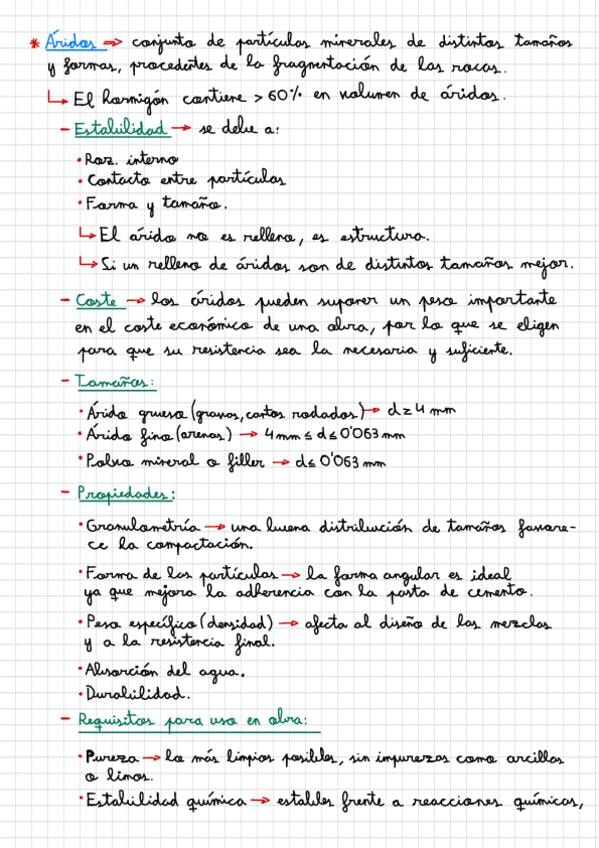 * Áridos ⇒ conjunto de partículas minerales de distintos tamaños
y formas, procedentes de la fragmentación de las rocas.
↳ El hormigón contiene > 60% en volumen de áridos.
- Estabilidad → se debe a:
• Roz. interno
• Contacto entre partículas
• Forma y tamaño.
↳ El árido no es relleno, es estructura.
↳ Si un relleno de áridos son de distintos tamaños mejor.
- Coste → los áridos pueden suponer un peso importante
en el coste económico de una obra, por lo que se eligen
para que su resistencia sea la necesaria y suficiente.
- Tamaños:
• Árido grueso (gravas, cantos rodados) → d ≥ 4 mm
• Árido fino (arenas) → 4 mm ≤ d ≤ 0'063 mm
• Polvo mineral o filler → d ≤ 0'063 mm
- Propiedades:
• Granulometría → una buena distribución de tamaños favore-
ce la compactación.
• Forma de las partículas → la forma angular es ideal
ya que mejora la adherencia con la pasta de cemento.
• Peso específico (densidad) → afecta al diseño de las mezclas
y a la resistencia final.
• Absorción del agua.
• Durabilidad.
- Requisitos para uso en obra:
• Pureza → lo más limpios posibles, sin impurezas como arcillas
o limos.
• Estabilidad química → estables frente a reacciones químicas,